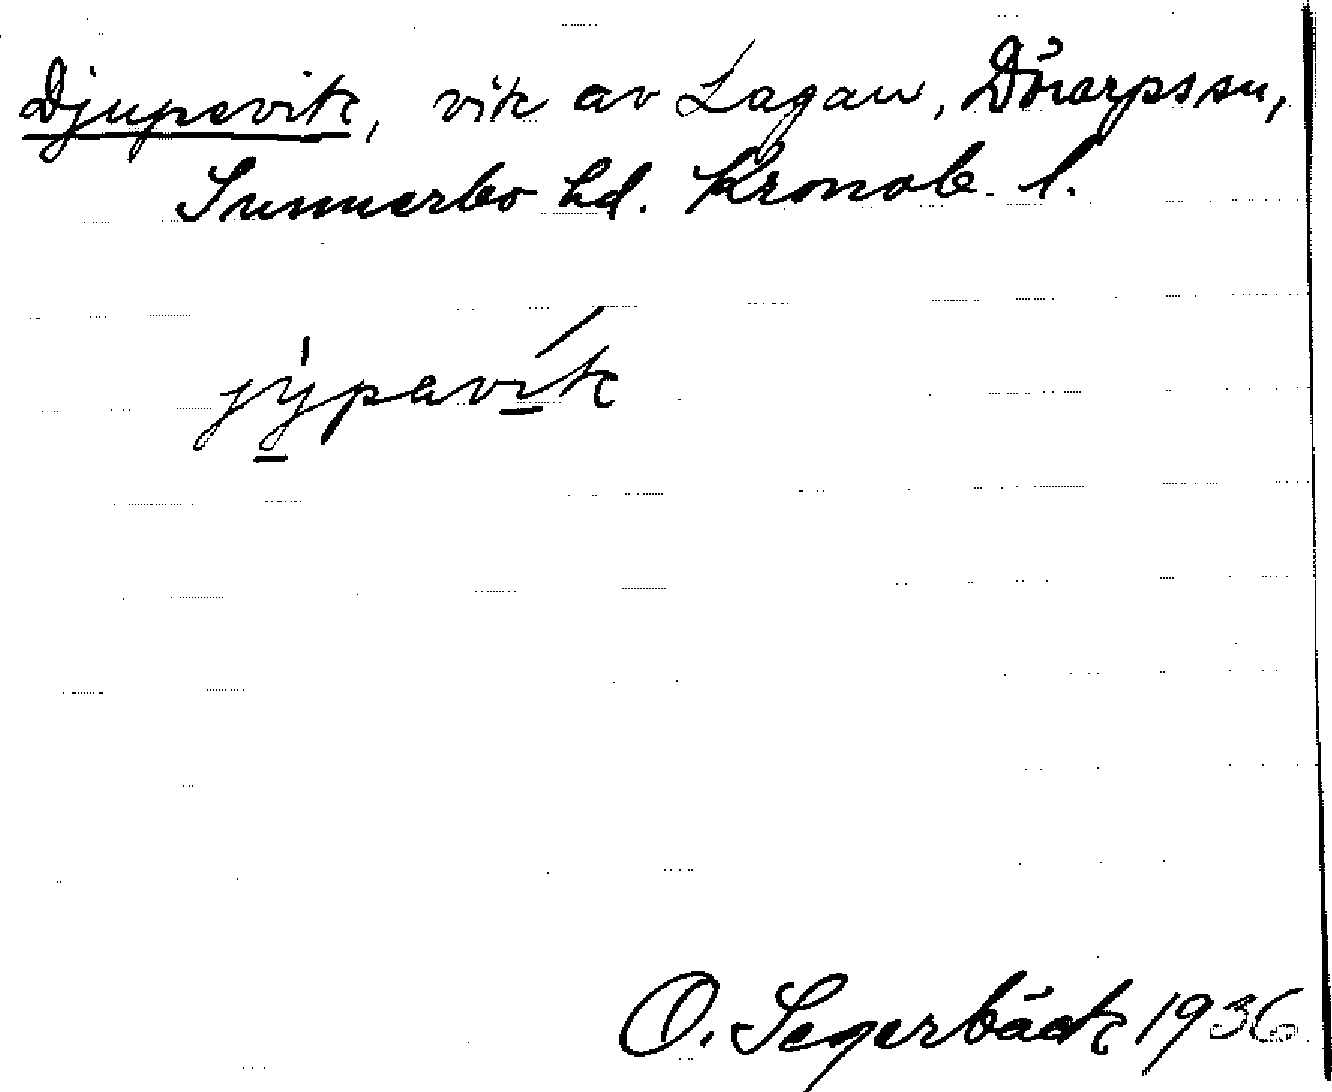 Djupevik, vik av Lagan, Dörarps sn,
Sunnerbo hd. Kronob. l.
jýpavík
O. Segerbäck 1936